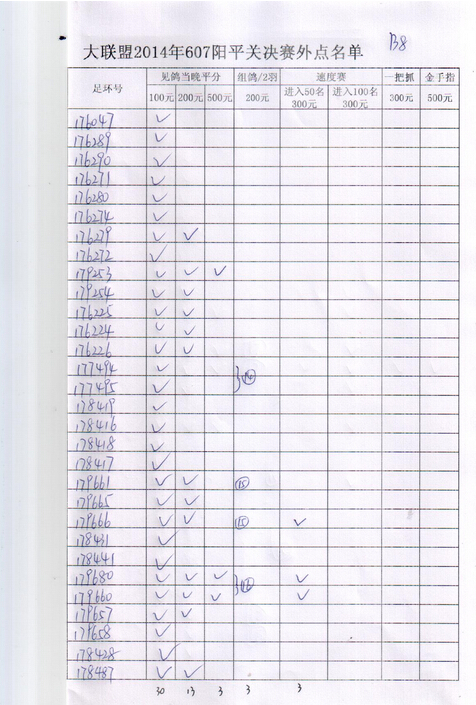 B8
大联盟2014年607阳平关决赛外点名单
足环号 见鸽当晚平分 组鸽/2羽 速度赛 一把抓 金手指
100元 200元 500元 200元 进入50名 300元 进入100名 300元 300元 500元
176047 ✓
176289 ✓
176290 ✓
176271 ✓
176280 ✓
176274 ✓
176279 ✓ ✓
176272 ✓
179253 ✓ ✓ ✓
179254 ✓ ✓
176225 ✓ ✓
176224 ✓ ✓
176226 ✓ ✓
177494 ✓
177495 ✓
178419 ✓
178416 ✓
178418 ✓
178417 ✓
179661 ✓ ✓ ⑮
179665 ✓ ✓
179666 ✓ ✓ ⑮ ✓
178431 ✓
178441 ✓
179680 ✓ ✓ ✓ ✓
179660 ✓ ✓ ✓ ✓
179657 ✓ ✓
179658 ✓
178428 ✓
178487 ✓ ✓
30 13 3 3 3